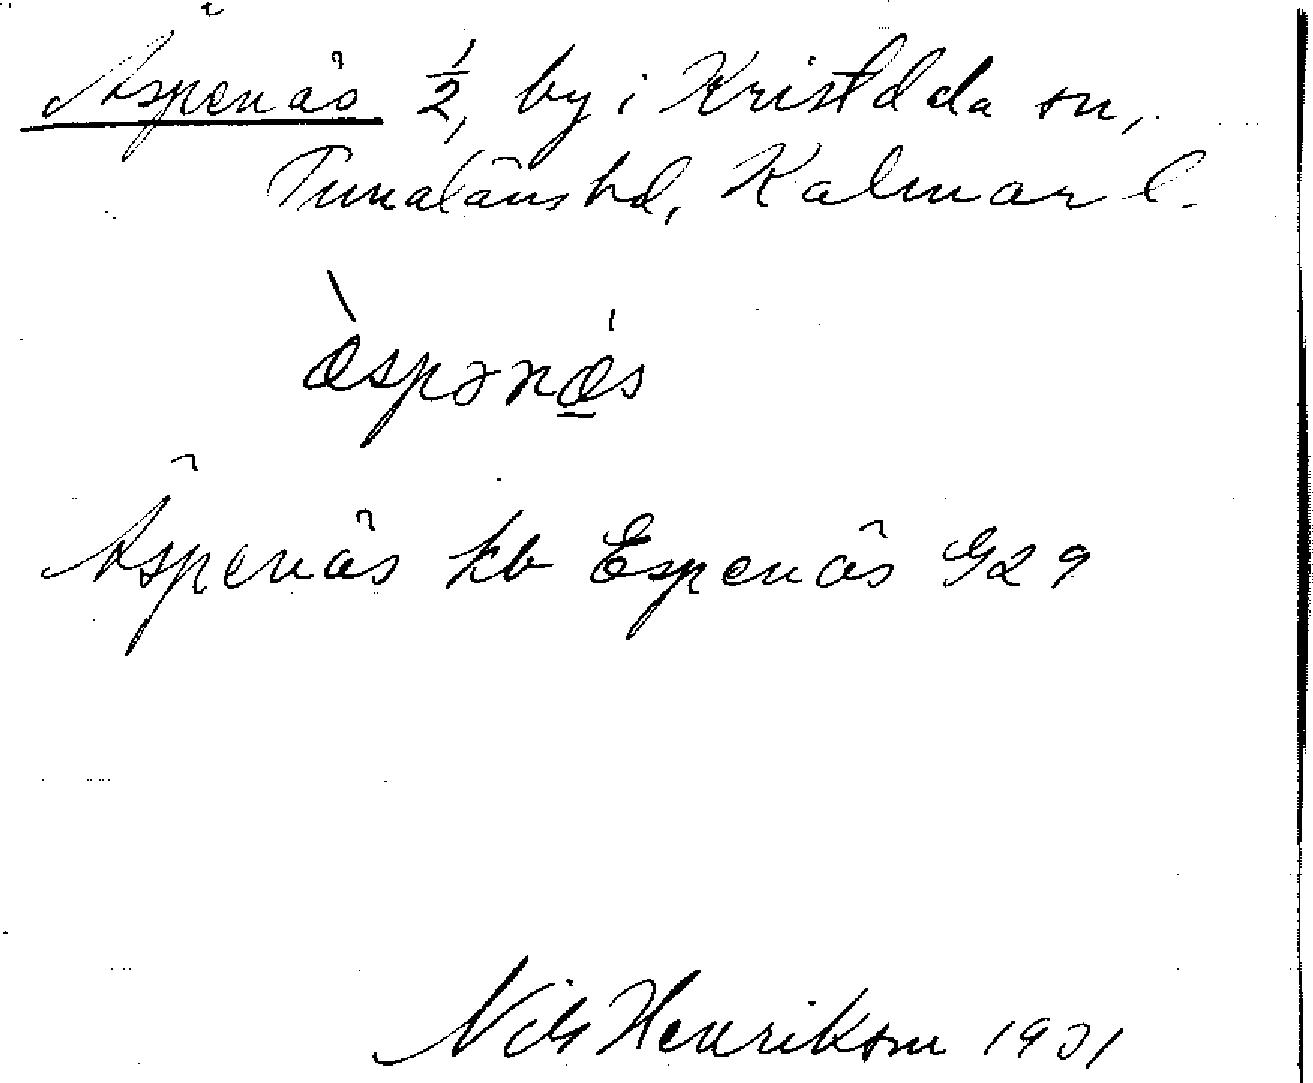 Äspenäs ½, by i Kristdala sn,
Tunaläns hd, Kalmar l.
æ̀spənæ̲s
Äspenäs kb Espenäs G29
Nils Henrikson 1931